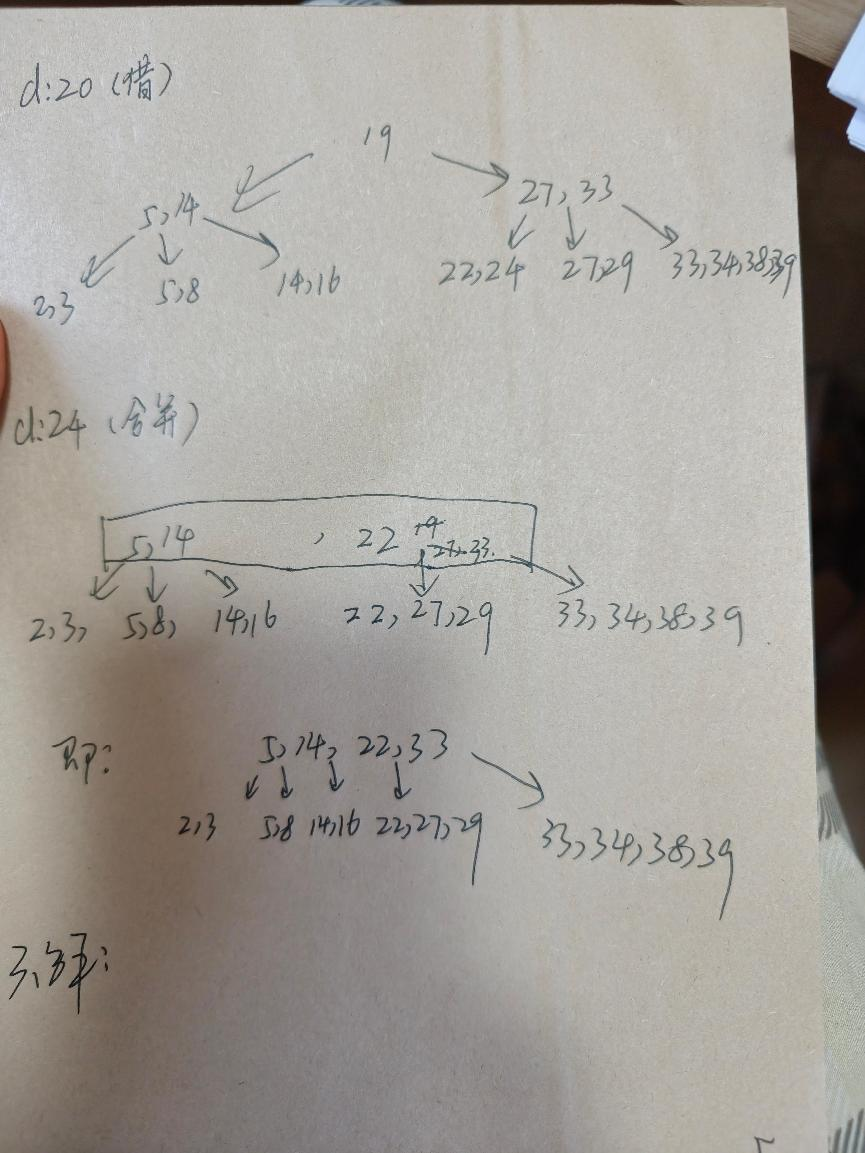 d:20（借）
19
5,14 27,33
2,3 5,8 14,16 22,24 27,29 33,34,38,39
d:24（合并）
5,14 , 22 19 27,33.
2,3, 5,8, 14,16 22,27,29 33,34,38,39
即:
5,14, 22,33
2,3 5,8 14,16 22,27,29 33,34,38,39
三、解: